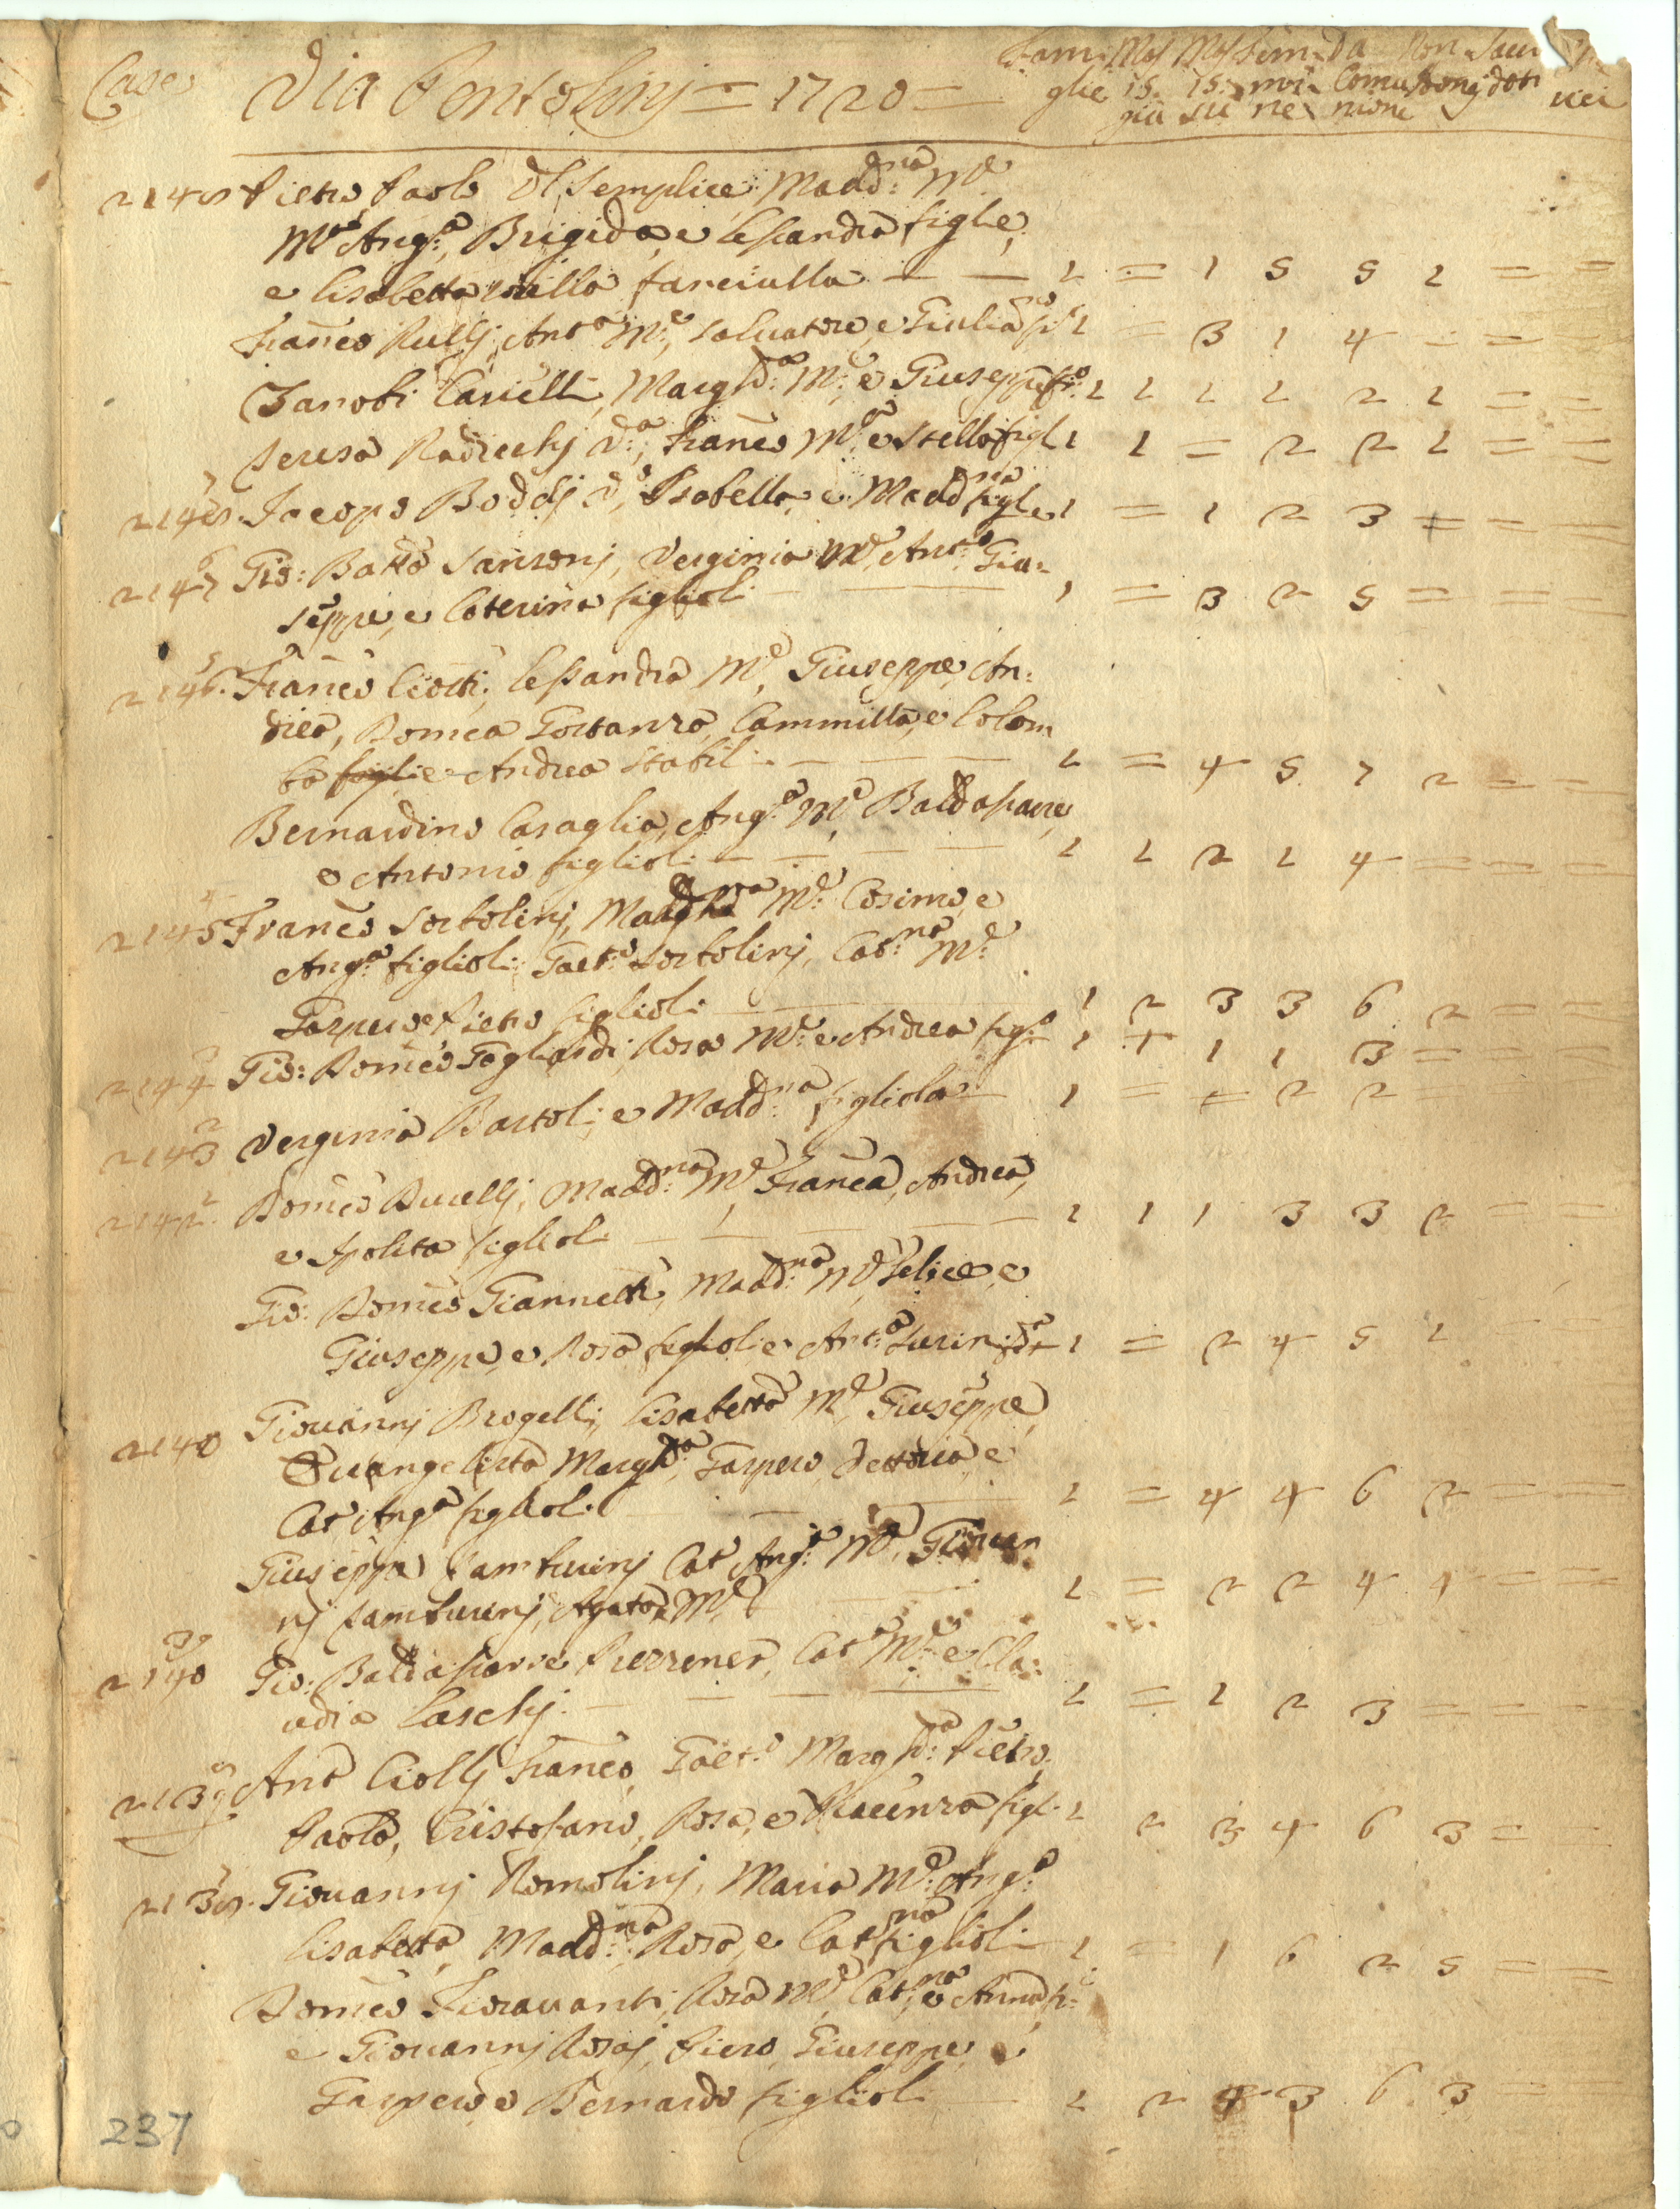 Case Via Pentolinj = 1720 = Fami Mas Mas Fem Da Non
glie 15. 15. mi: Comu doti
giu su ne nione
2148 Pietro Paolo del Semplice, Madd:na Me
Ma Anga: Brigida, e Lessandra figlie,
e Lisabetta fanciulla — — 1 = 1 5 5 1 = =
Franco Rullj, Anta Me: Salvatore, e Giulia fi: 1 = 3 1 4 = = =
Zanobi Casielli, Margh:a Me: e Giuseppe fi:o 1 1 1 1 2 1 = =
Teresa Radicchj Va:, Franco Me e Stella figl 1 1 = 2 2 1 = =
7
2148. Jacopo Boddj Vo, Isabella, e Madd:na figle 1 = 1 2 3 = = =
6
2147 Gio: Batta Sansonj, Verginia Me, Anto: Giu=
seppe, e Caterina figlioli — 1 = 3 2 5 = = =
5
2146. Franco Ciotti, Lessandra Me, Giuseppe, An:
drea, Domca Gostanza, Cammilla, e Colom
ba figli e Andrea Stabili — — — 1 = 4 5 7 2 = =
Bernardino Casaglia, Anga: Me, Baldassarre,
e Antonio figlioli — — — — 1 1 2 1 4 = = =
4
2145 Franco Sortolinj, Madd:na Me: Cosimo, e
Anga: figlioli, Gaeto: Sortolinj, Cat:na Me:
Gaspero e Pietro figlioli — 1 2 3 3 6 2 = =
3
2144 Gio: Domco Gogliardi, Rosa Me: e Andrea figo: 1 + 1 1 3 = = =
2
2143 Verginia Bartoli, e Madd:na figliola — 1 = = 2 2
2142. Domco Ducellj, Madd:na Me Franca, Andrea,
e Ipolita figlioli — — — — 1 1 1 3 3 2 = =
Gio: Domco Giannetti, Madd:na Me, Felice, e
Giuseppe, e Rosa figlioli e Anta: 1 = 2 4 5 1
2140 Giovannj Brogellj, Lisabetta Me, Giuseppe,
Evangelista Marghta, Gaspero, Vettoria e
Cat Anga figlioli — 1 = 4 4 6 2 = =
Giuseppe Tamburinj Cat Anga: Me, Giovan
nj Tamburinj, Agata Me — 1 = 2 2 4 1 = =
39
2140 Gio: Baldassarre Pierziner, Cata Me: e Cla:
udia Laschj. — — — — 1 = 1 2 3 = = =
2139 Anto Ciollj Franco, Gaeto: Margh:a Pietro,
Paolo, Cristofano, Rosa, e Piacenza figl: 1 2 3 4 6 3 = =
2138. Giovannj Romolinj, Maria Me: Anga:
Lisabetta, Madd:na, Rosa, e Cat:na figlioli — 1 = 1 6 2 5 = =
Domco Fioravanti, Rosa Me, Cat:na e Anna fi=
e Giovannj Rosaj, Piero, Giuseppe, e
Gaspero e Bernardo figlioli — 1 2 4 3 6 3 = =
237